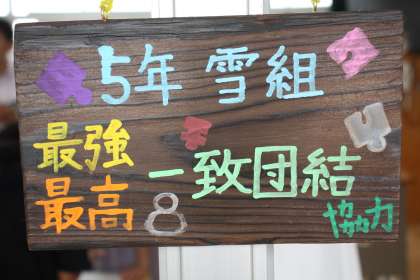 5年 雪組
最強
最高
一致団結
8
協力